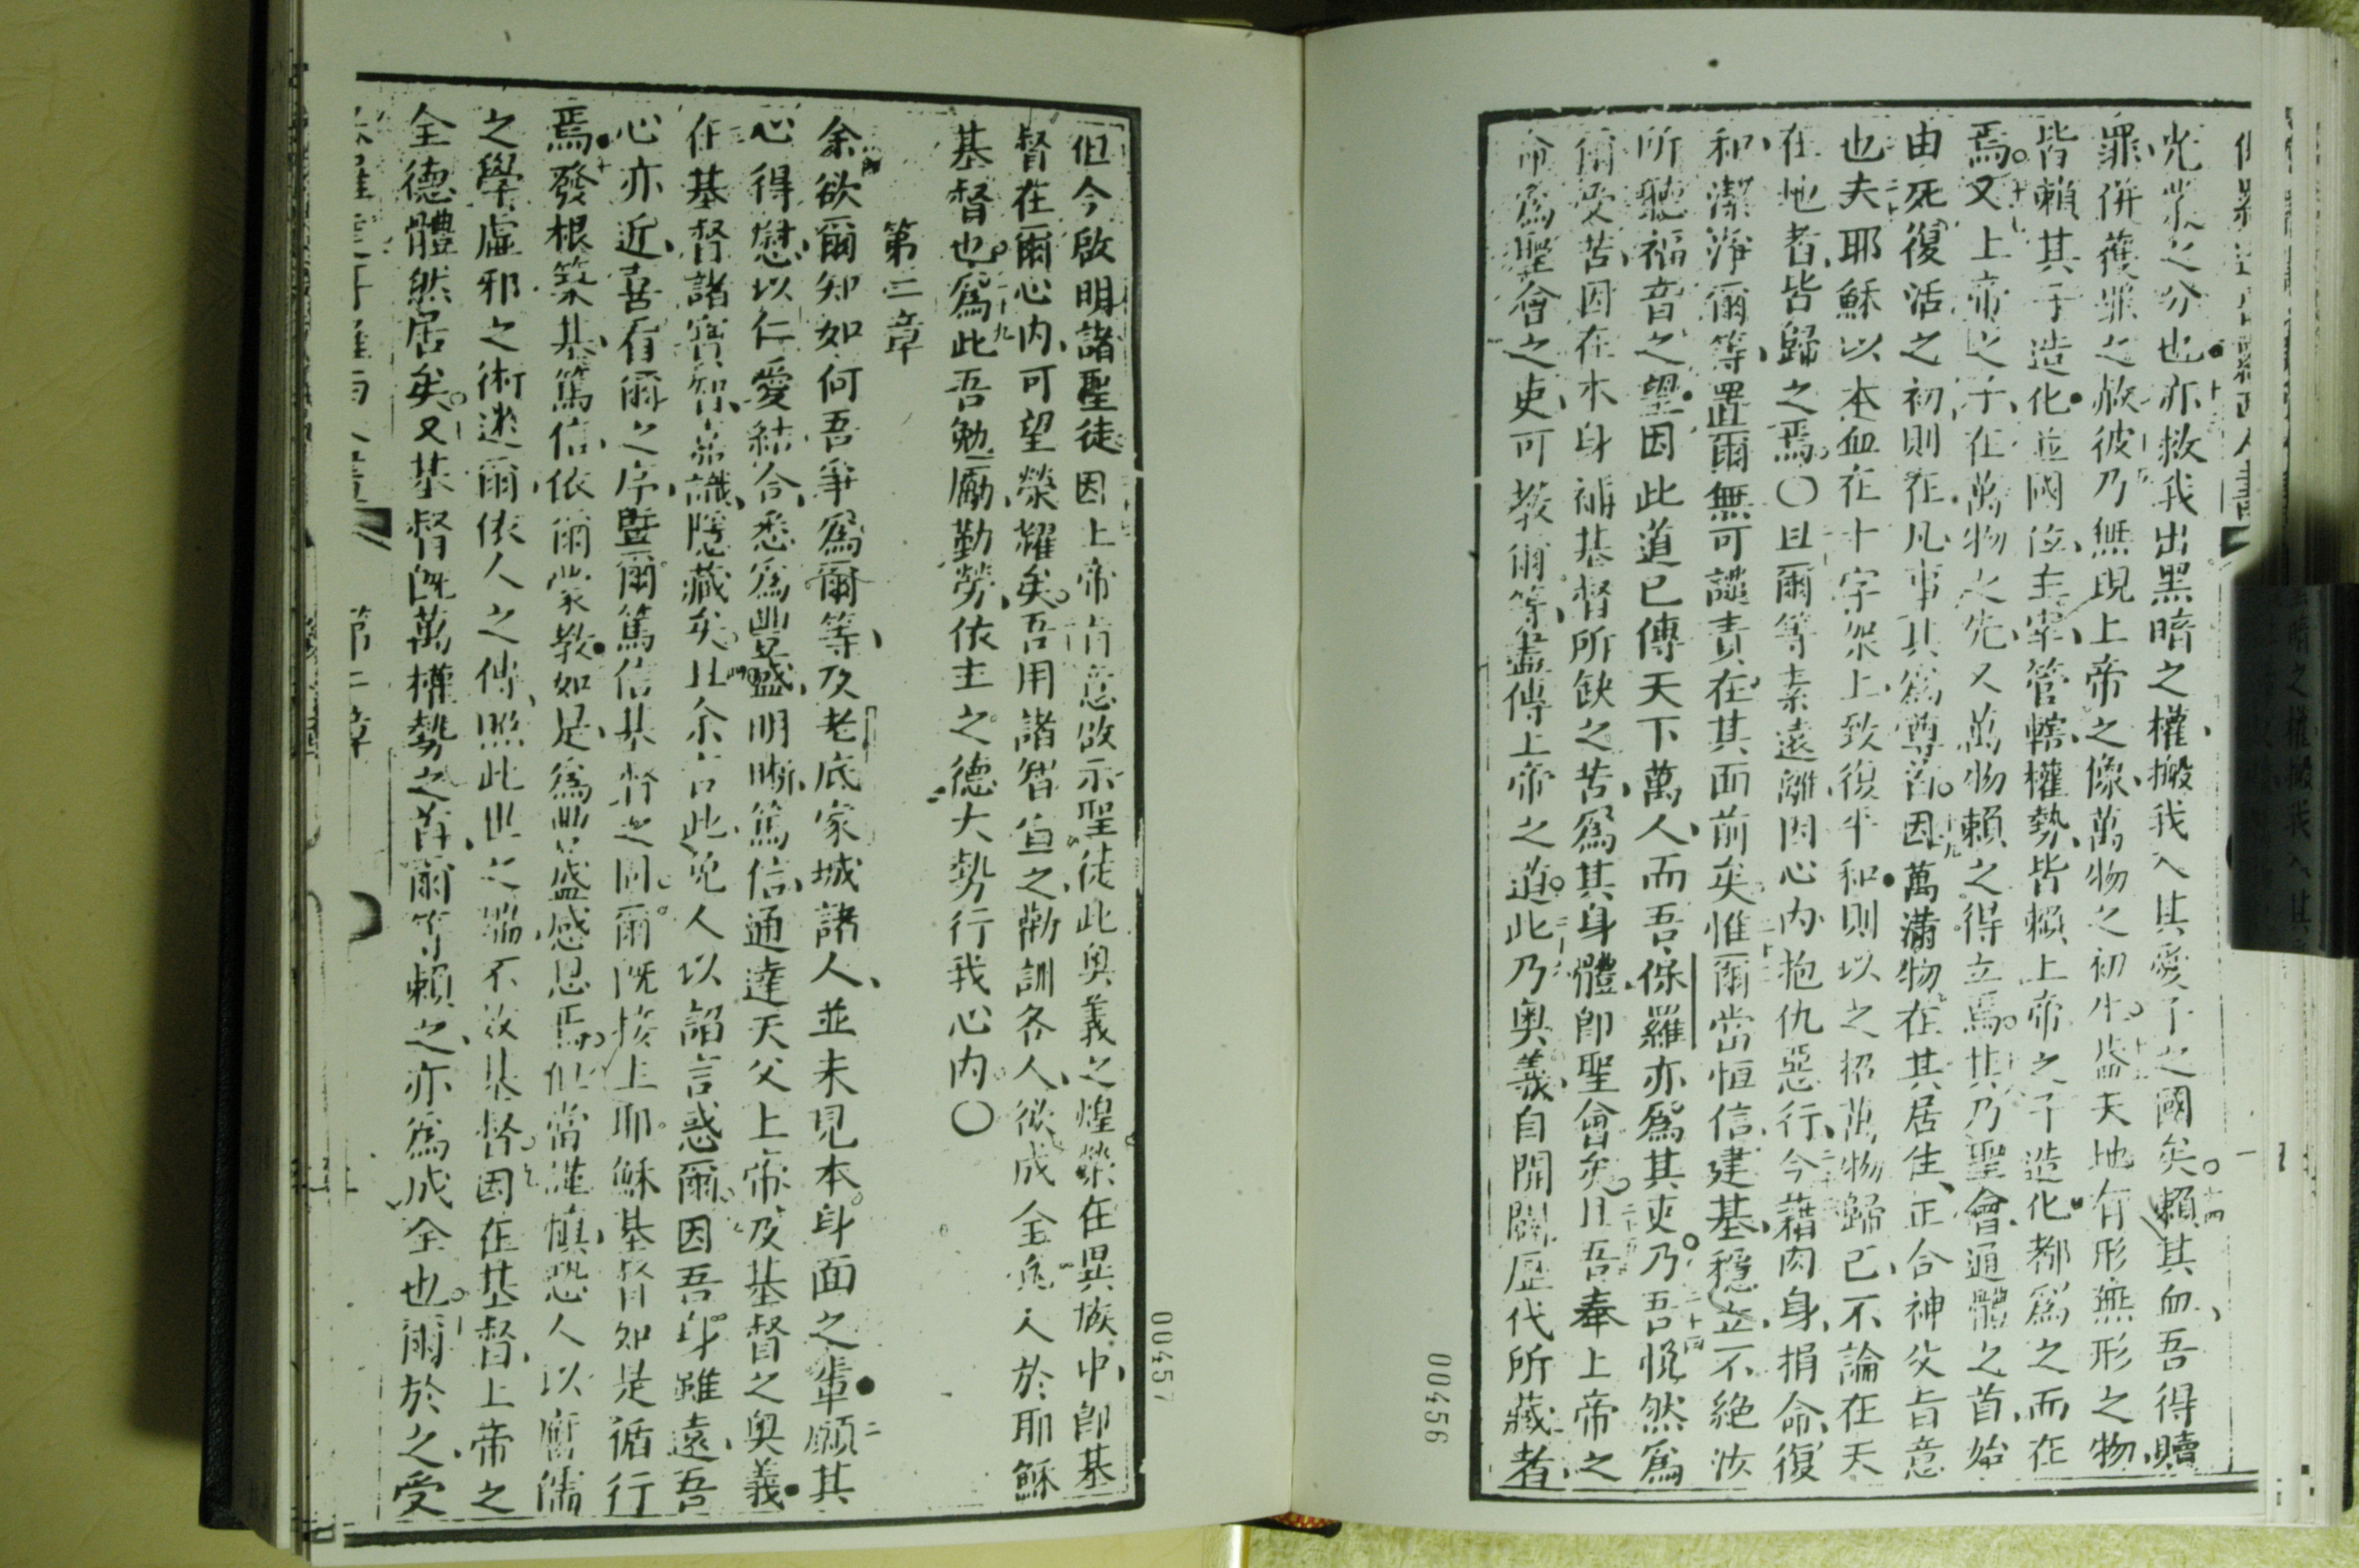 光業之分也亦救我出黑暗之權搬我入其愛子之國矣賴其血吾得贖
罪併獲罪之赦彼乃無現上帝之像萬物之初生益天地有形無形之物
皆賴其子造化並國位主宰管轄權勢皆賴上帝之子造化都爲之而在
焉又上帝之子在萬物之先又萬物賴之得立焉其乃聖會通體之首始
由死復活之初則在凡事其爲尊首因萬滿物在其居住正合神父旨意
也夫耶穌以本血在十字架上致復平和則以之招萬物歸己不論在天
在地者皆歸之焉〇且爾等素遠離因心內抱仇惡行今藉肉身捐命復
和潔淨爾等置爾無可譴責在其面前矣惟爾當恒信建基穩立不絕汝
所聽福音之望因此道已傳天下萬人而吾保羅亦爲其吏乃吾悅然爲
爾受苦因在本身補基督所缺之苦爲其身體卽聖會矣且吾奉上帝之
命爲聖會之吏可教爾等盡傳上帝之道此乃奧義自開闢歷代所藏者
00456
但今啟明諸聖徒因上帝肯意啟示聖徒此奧義之煌榮在異族中卽基
督在爾心內可望榮耀矣吾用諸智宣之勸訓各人欲成全每人於耶穌
基督也爲此吾勉勵勤勞依主之德大勢行我心內〇
第二章
余欲爾知如何吾爭爲爾等及老底家城諸人並未見本身面之輩願其
心得慰以仁愛結合悉爲豐盛明晰篤信通達天父上帝及基督之奧義
在基督諸寶智知識隱藏矣且余言此免人以諂言惑爾因吾身雖遠吾
心亦近喜看爾之序曁爾篤信基督之固爾既接上耶穌基督如是循行
焉發根築基篤信依爾蒙教如是爲豐盛感恩焉但當謹愼恐人以腐儒
之學虛邪之術迷爾依人之傳照此世之端不汝基督因在基督上帝之
全德體然居矣又基督既萬權勢之首爾等賴之亦爲成全也爾於之受
第二章
00457